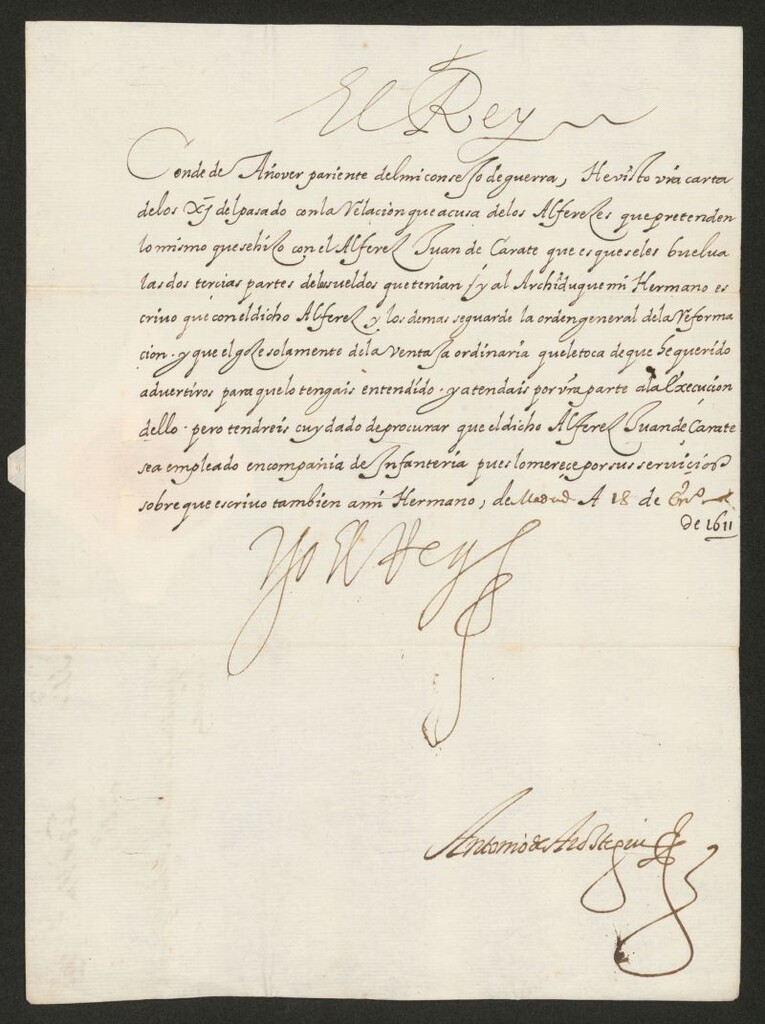 El Rey
Conde de Añover pariente del mi consejo de guerra, He visto vrã carta
de los xj del pasado con la Relacion que acusa de los Alferezes que pretenden
lo mismo que se hizo con el Alferez Juan de Çarate que es que se les buelua
las dos tercias partes de los sueldos que tenian / y al Archiduque mi Hermano es
criuo que con el dicho Alferez y los demas se guarde la orden general de la Reforma
cion. y que el goze solamente de la Ventaja ordinaria que le toca de que he querido
advertiros para que lo tengais entendido. y atendais por vrã parte a la Execucion
dello. pero tendreis cuydado de procurar que el dicho Alferez Juan de Çarate
sea empleado en compañia de Infanteria pues lo mereçe por sus servicios
sobre que escriuo tambien a mi Hermano, de Madrid A 18 de Enº
de 1611
Yo El Rey
Antonio de Arostegui